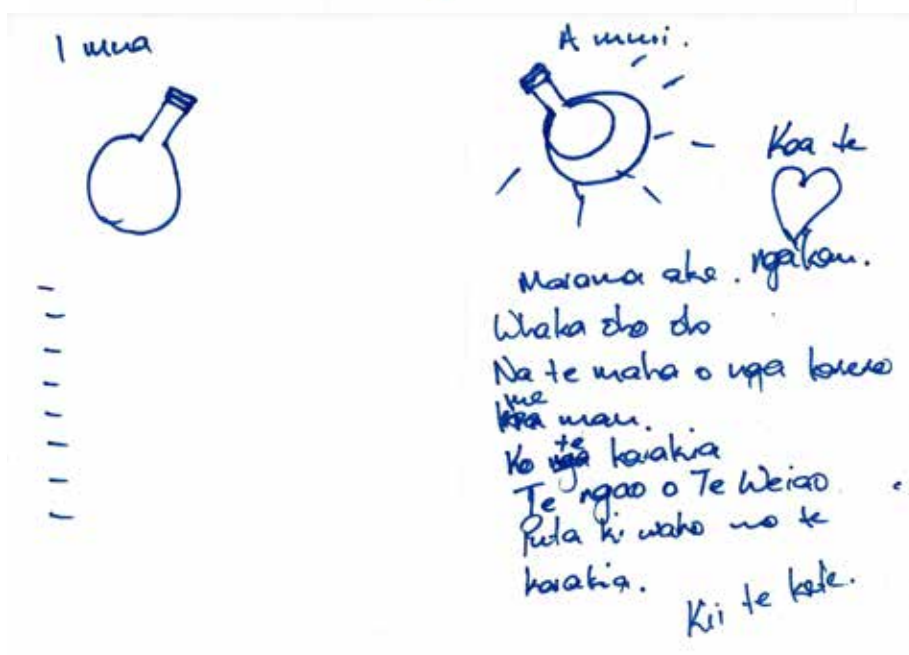 I mua
A muri.
Koa te
ngakau.
Marama ake.
Whaka oho oho
Na te maha o nga korero
me mau.
Ko te karakia
Te ngao o Te Weiao
Puta ki waho no te
karakia.
Kii te kete.